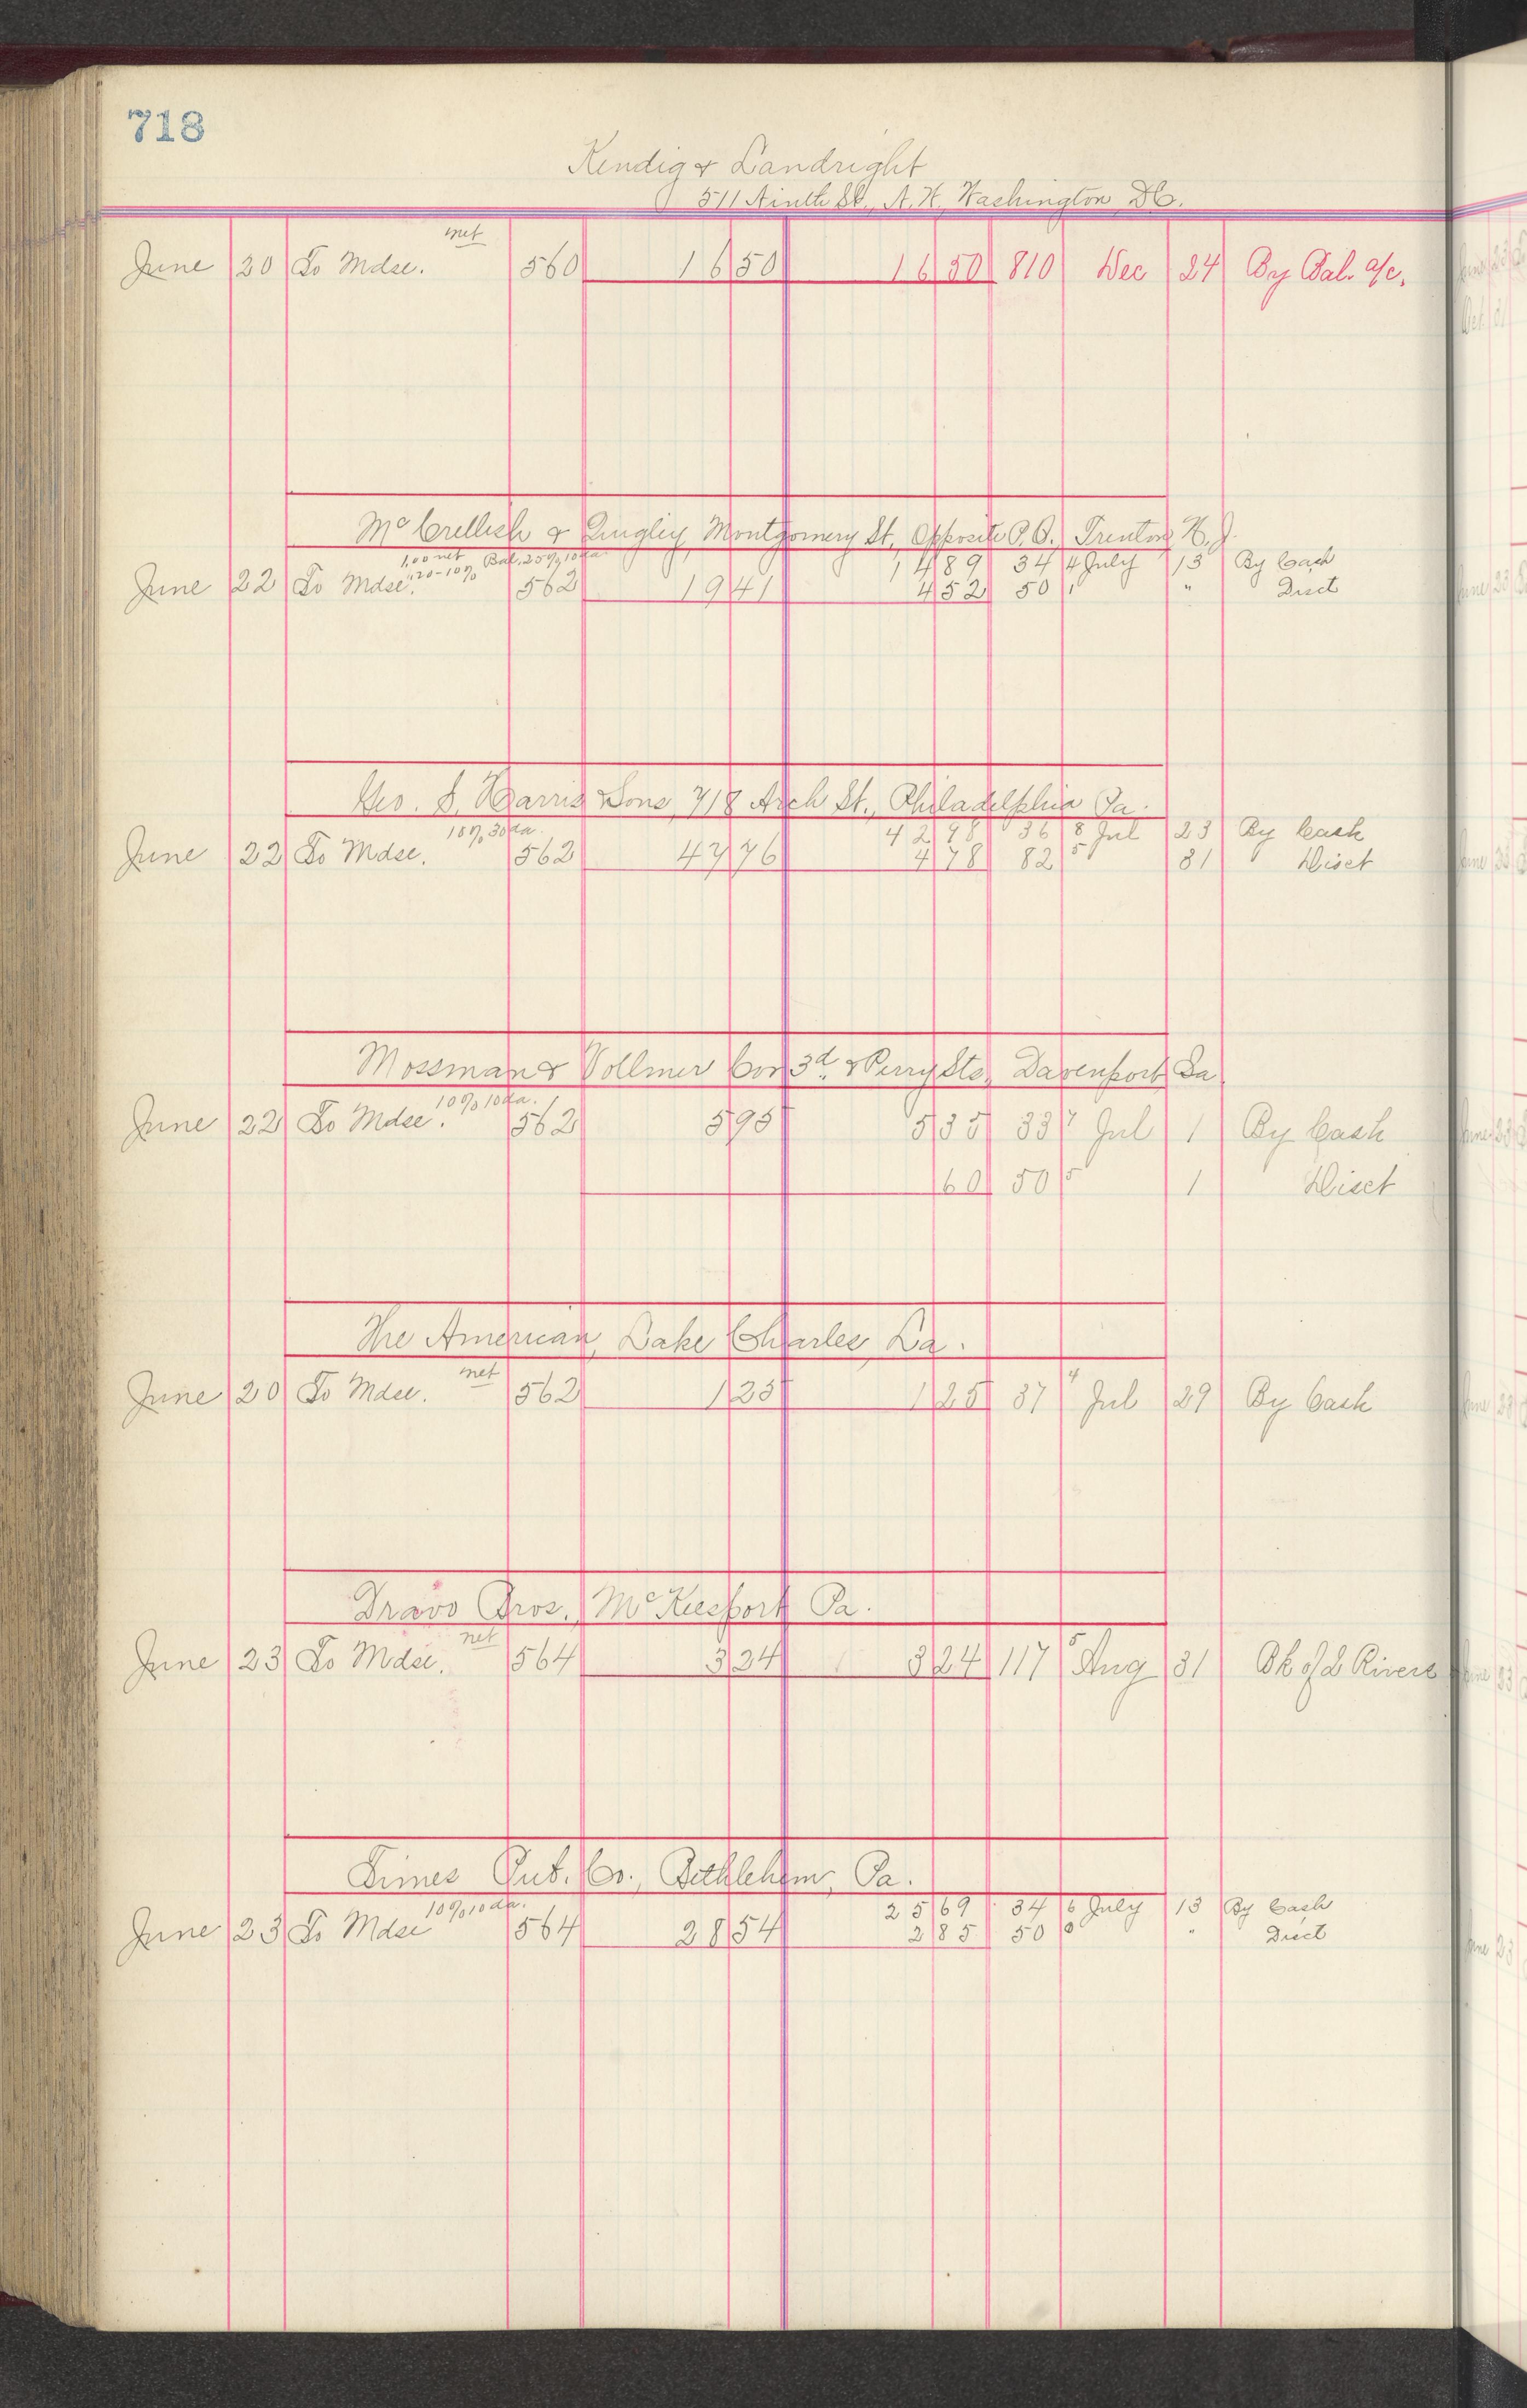 718
Kendig & Landright
511 Ninth St., N. W. Washington D.C.
net
June 20 To Mdse. 560 16 50 16 50 810 Dec 24 By Bal. a/c.
McCrellish & Quigley, Montgomery St, Opposite P. O., Trenton, N. J.
1,00 net Bal. 25% 10 da. 14 89 34 4 July 13 By Cash
June 22 To Mdse. 562 19 41 4 52 50 " Disct
Geo. S. Harris & Sons, 718 Arch St., Philadelphia Pa.
10% 30 da. 42 98 36 8 Jul 23 By Cash
June 22 To Mdse. 562 47 76 4 78 82 5 31 " Disct
Mossman & Vollmer Cor 3d. & Perry Sts, Davenport, Ia
10% 10 da.
June 22 To Mdse. 562 5 95 5 35 33 7 Jul 1 By Cash
60 50 5 1 Disct
The American, Lake Charles, La.
net
June 20 To Mdse. 562 1 25 1 25 37 4 Jul 29 By Cash
Dravo Bros., McKeesport Pa.
net
June 23 To Mdse. 564 3 24 3 24 117 5 Aug 31 Bk of L Rivers
Times Pub. Co., Bethlehem, Pa.
10% 10 da. 25 69 34 6 July 13 By Cash
June 23 To Mdse 564 28 54 2 85 50 " Disct